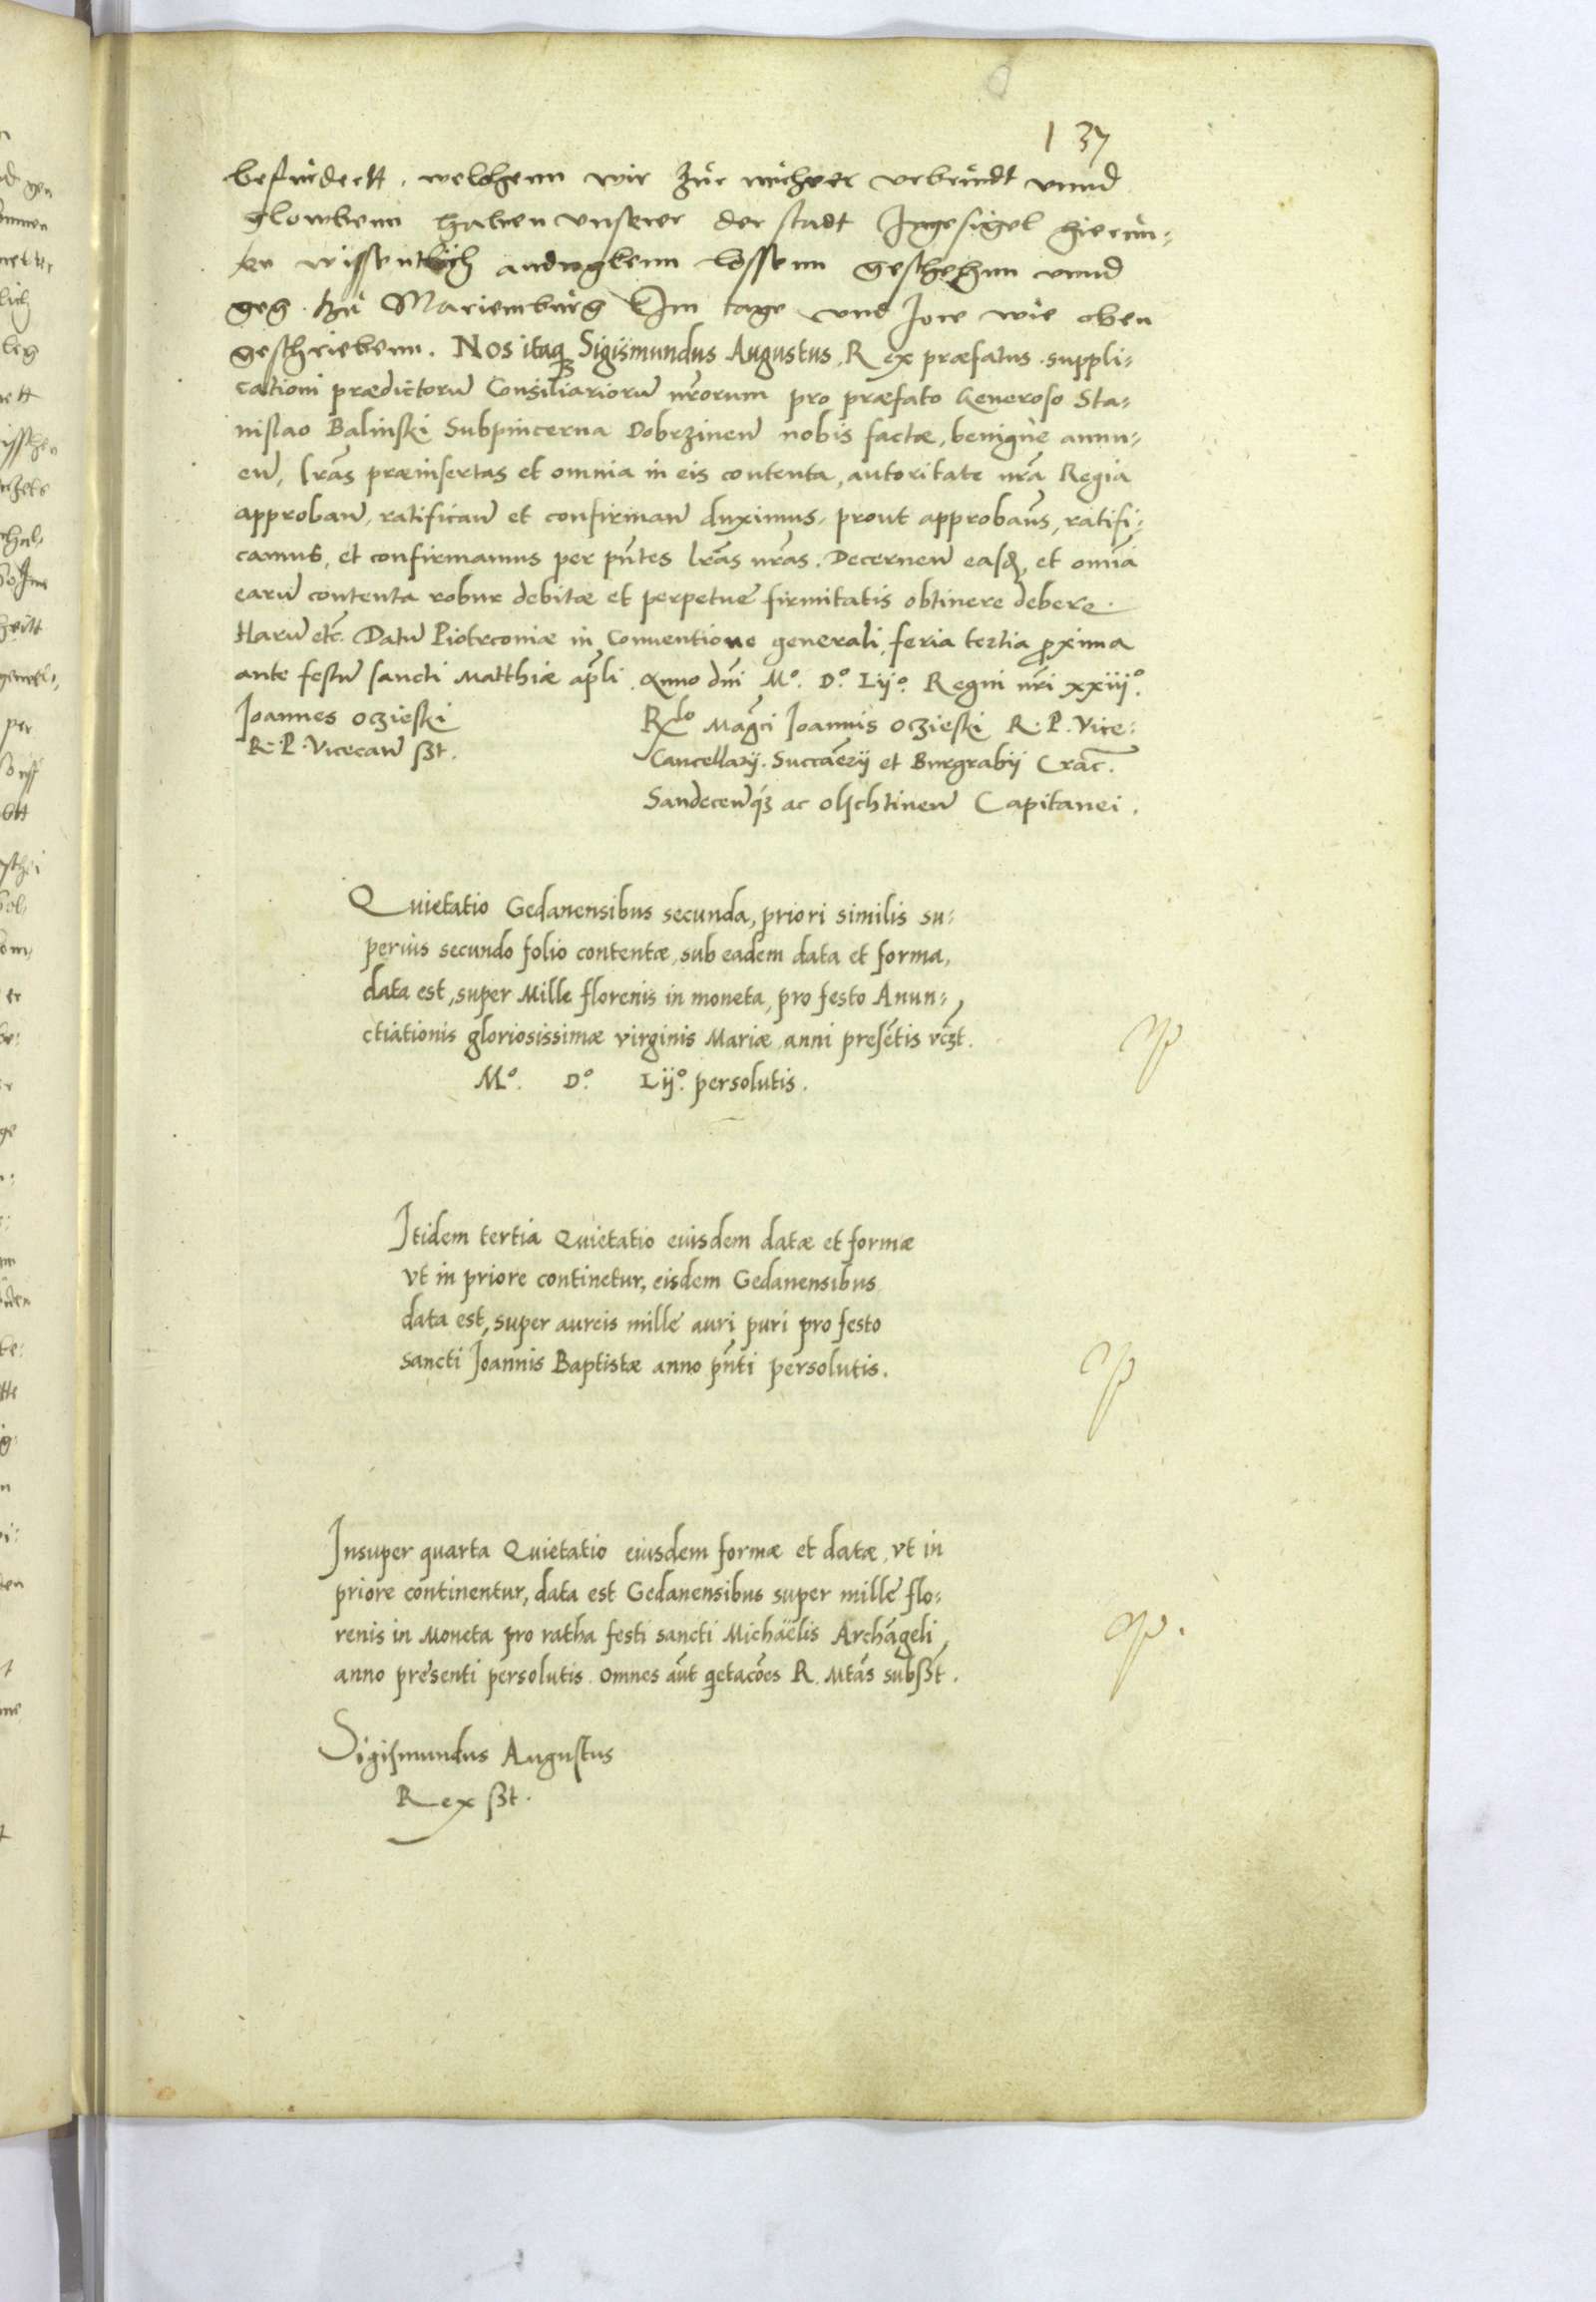 137
befurdertt, welchenn wir zur mehrer urkundt vnnd
glowbenn haben vnserer der stadt Ingesigel hierun-
ter wissentlich andrugkenn lossenn geschehnn vnnd
geg. zu Marienburg Am tage vnd Jore wie oben
geschriebenn. Nos itaq₃ Sigismundus Augustus, Rex præfatus. suppli-
cationi prædictorũ Consiliariorũ nr̃orum pro præfato Generoso Sta-
nislao Balinski Subpincerna Dobrzineñ nobis factæ, benigne annu-
eñ, lr̃as præinsertas et omnia in eis contenta, autoritate nr̃a Regia
approbañ, ratificañ et confirmañ duximus, prout approbam̃s, ratifi-
camus, et confirmamus per pñtes lr̃as nr̃as. Decerneñ easd̃, et om̃ia
earũ contenta robur debitæ et perpetuæ firmitatis obtinere debere.
Harũ etc̃. Datũ Piotrconiæ in Conventione generali, feria tertia proxima
ante festũ sancti Matthiæ apl̃i. Anno dñi Mº. Dº. Lijº. Regni nr̃i xxiijº.
Joannes Oczieski
R. P. Vicecañ sst.
Rlo Magc̃i Joannis Oczieski R. P. Vice-
Cancellarij. Succam̃erij et Burgrabij Crac̃.
Sandeceñq₃ ac Olschtineñ Capitanei.
Quietatio Gedanensibus secunda, priori similis su-
perius secundo folio contentæ, sub eadem data et forma,
data est, super Mille florenis in moneta, pro festo Anun-
ctiationis gloriosissimæ virginis Mariæ anni presẽtis vcz̃t.
Mº. Dº. Lijº. persolutis.
Itidem tertia Quietatio eiusdem datæ et formæ
vt in priore continetur, eisdem Gedanensibus
data est, super aureis mille auri puri pro festo
sancti Joannis Baptistæ anno pñti persolutis.
Insuper quarta Quietatio eiusdem formæ et datæ, vt in
priore continentur, data est Gedanensibus super mille flo-
renis in Moneta pro ratha festi sancti Michaëlis Archãgeli,
anno presenti persolutis. Omnes aũt qetacões R. Mtãs subsst̃.
Sigismundus Augustus
Rex sst.